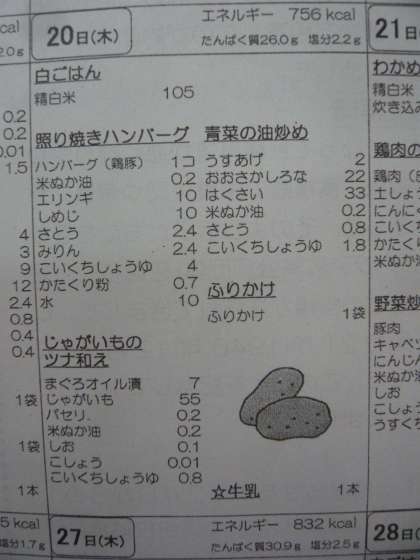 20日(木)
エネルギー 756 kcal
たんぱく質26.0g 塩分2.2g
21日
2.0g
白ごはん
精白米 105
照り焼きハンバーグ
ハンバーグ（鶏豚） 1コ
米ぬか油 0.2
エリンギ 10
しめじ 10
さとう 2.4
みりん 2.4
こいくちしょうゆ 4
かたくり粉 0.7
水 10
じゃがいもの
ツナ和え
まぐろオイル漬 7
じゃがいも 55
パセリ 0.2
米ぬか油 0.2
しお 0.1
こしょう 0.01
こいくちしょうゆ 0.8
青菜の油炒め
うすあげ 2
おおさかしろな 22
はくさい 33
米ぬか油 0.2
さとう 0.8
こいくちしょうゆ 1.8
ふりかけ
ふりかけ 1袋
☆牛乳 1本
0.2
0.2
0.01
1.5
4
3
9
12
2.4
0.8
0.4
0.4
1袋
1袋
1本
わかめ
精白米
炊き込み
鶏肉の
鶏肉
土しょう
にんにく
さとう
こいくち
かたくり
米ぬか
野菜炒
豚肉
キャベツ
にんじん
米ぬか油
しお
こしょう
うすくち
5 kcal
塩分1.7g
27日(木)
エネルギー 832 kcal
たんぱく質30.9g 塩分2.5g
28日